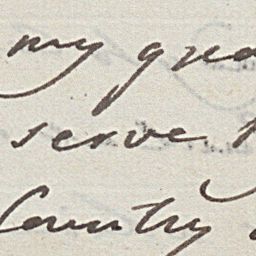 my grea
serve
Country